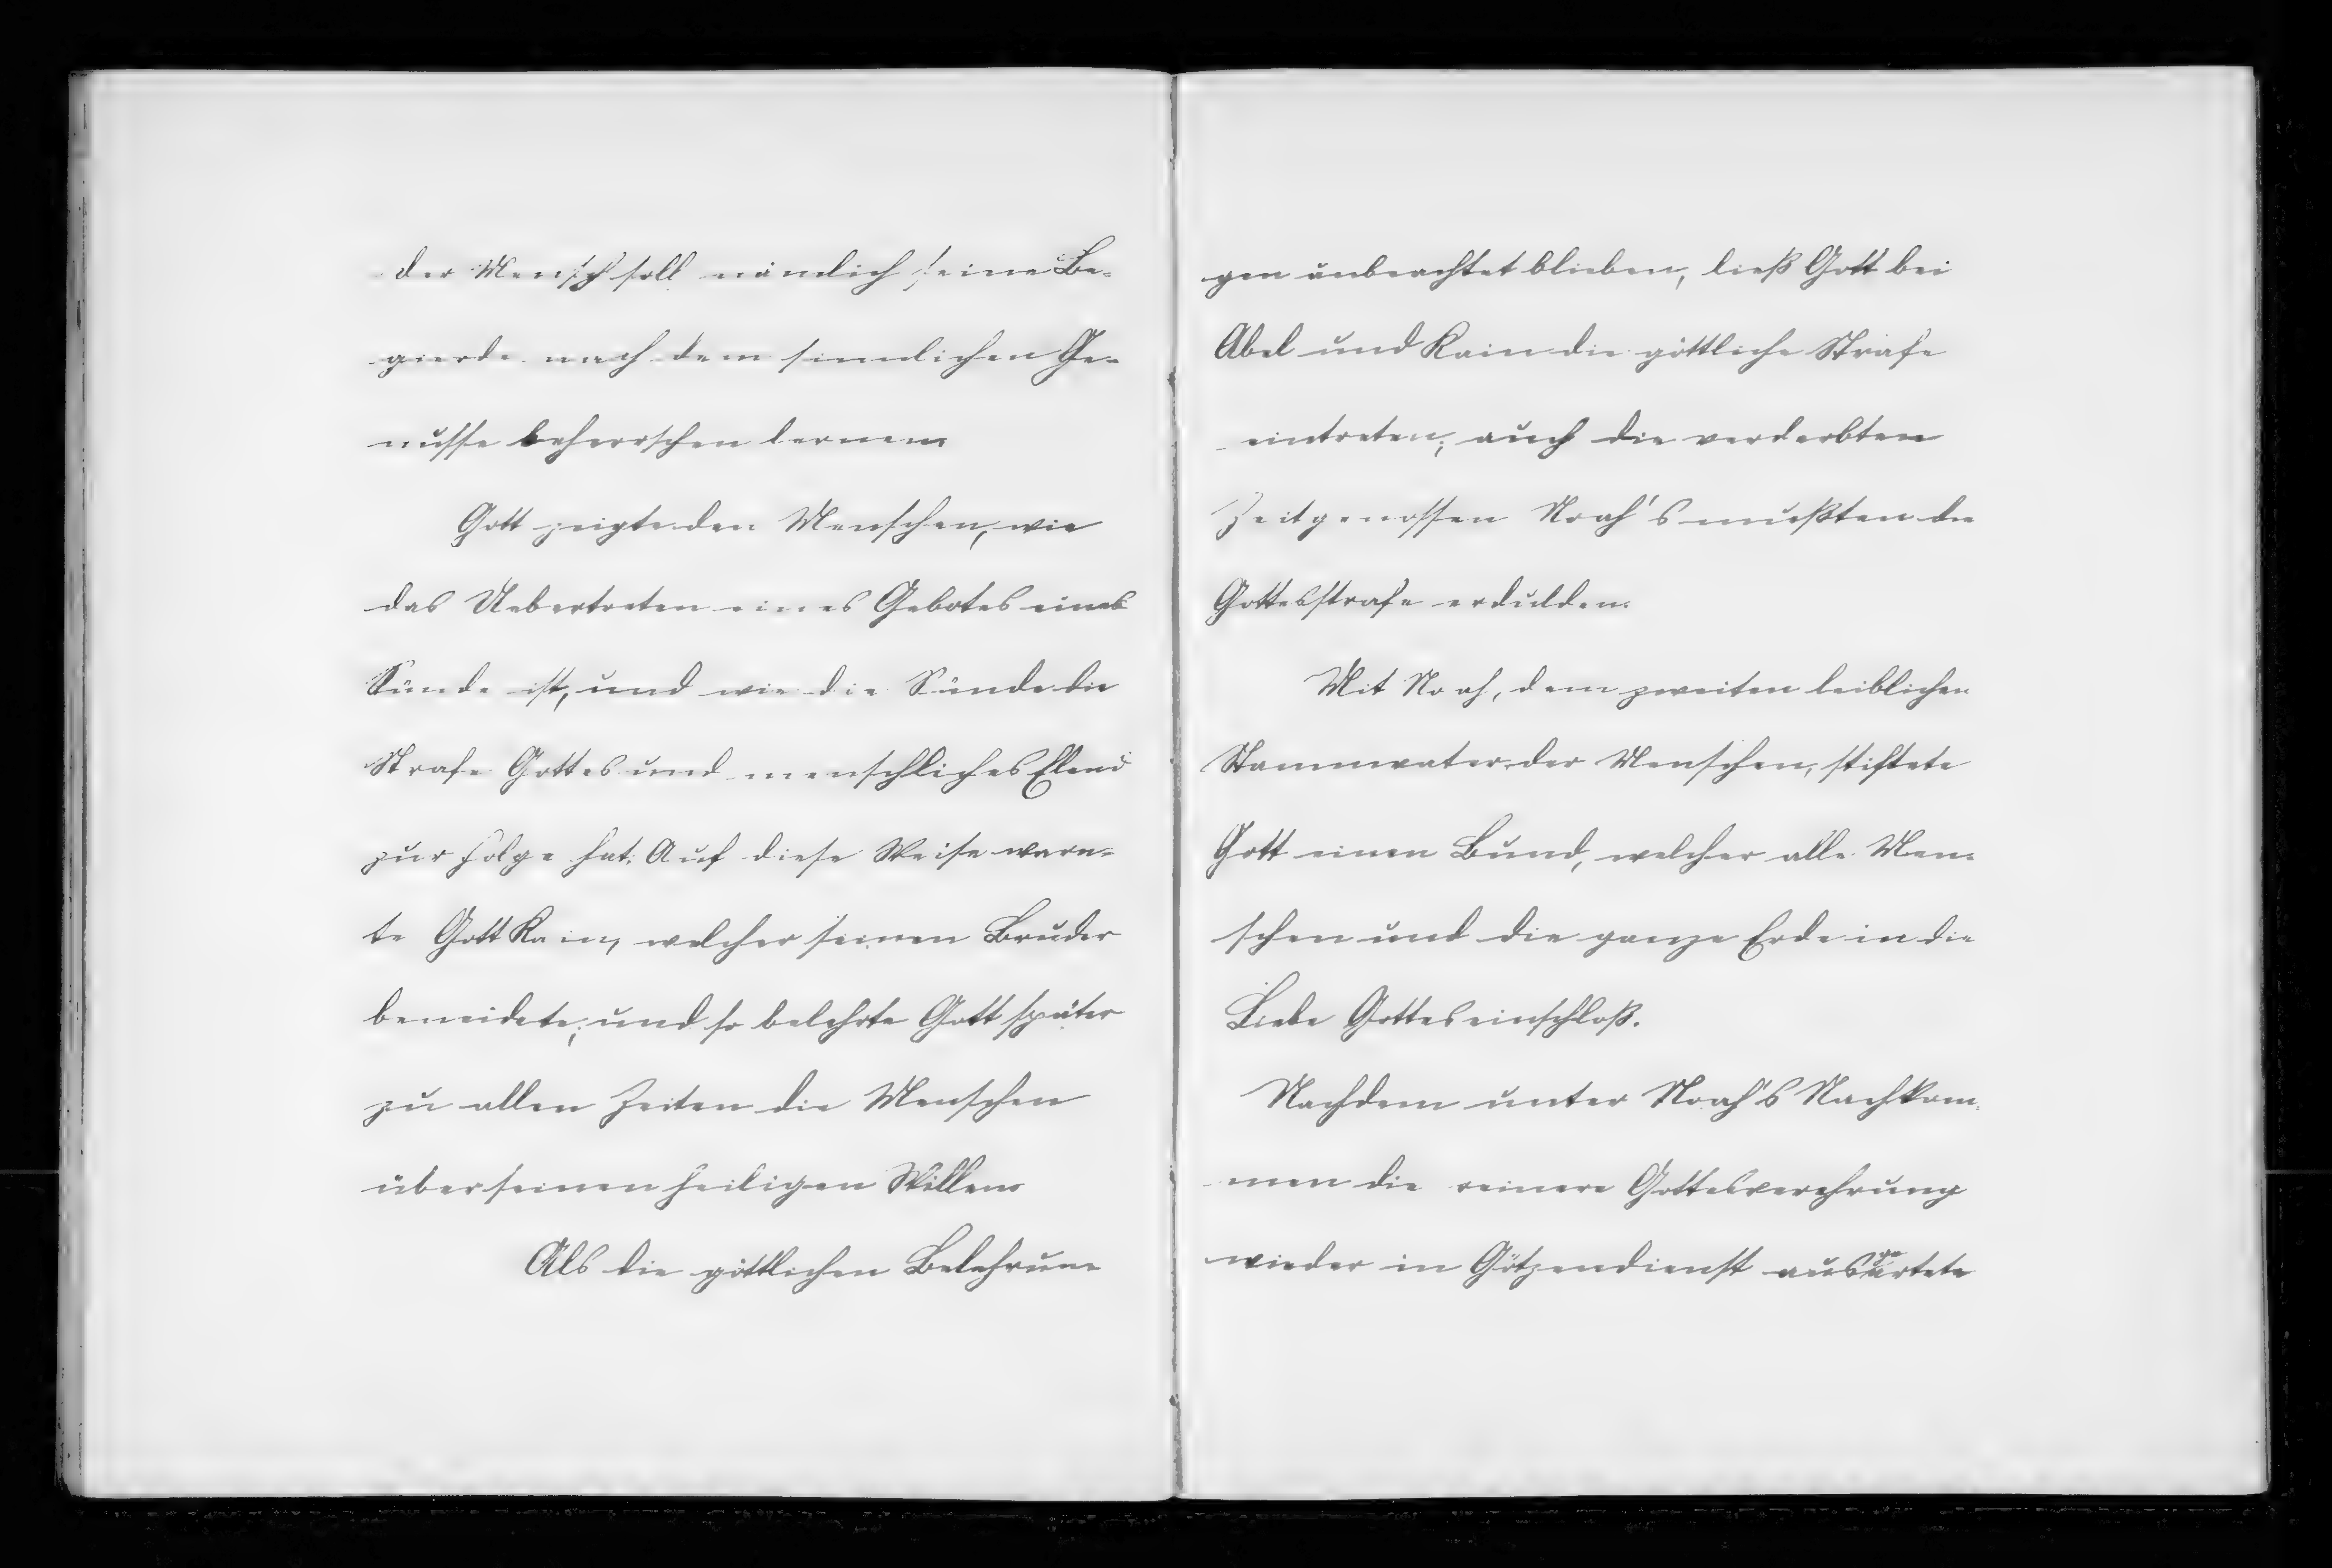 der Mensch soll nämlich seine Be-
gierde nach dem sinnlichen Ge-
nusse beherrschen lernen.
Gott zeigte den Menschen, wie
das Uebertreten eines Gebotes eines
Sünde ist, und wie die Sünde die
Strafe Gottes und menschliches Elend
zur Folge hat. Auf diese Weise warn-
te Gott Kain, welcher seinen Bruder
beneidete; und so belehrte Gott später
zu allen Zeiten die Menschen
über seinen heiligen Willen.
Als die göttlichen Belehrun-
gen unbeachtet blieben, ließ Gott bei
Abel und Kain die göttliche Strafe
eintreten; auch die verderbten
Zeitgenossen Noah's mußten die
Gottesstrafe erdulden.
Mit Noah, dem zweiten leiblichen
Stammvater der Menschen, stiftete
Gott einen Bund, welcher alle Men-
schen und die ganze Erde in die
Liebe Gottes einschloß.
Nachdem unter Noah's Nachkom-
men die reinere Gottesverehrung
wieder in Götzendienst ausartete